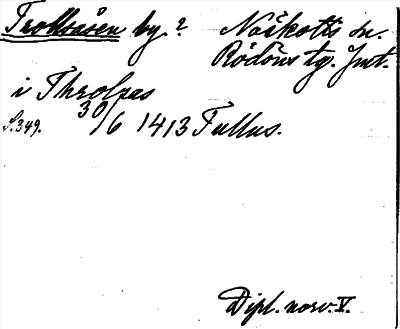 Trollsåsen by? Näskotts sn.
Rödöns tg. Jmt.
i Throlsas
S. 349. 30/6 1413 Fullus.
Dipl. norv. V.